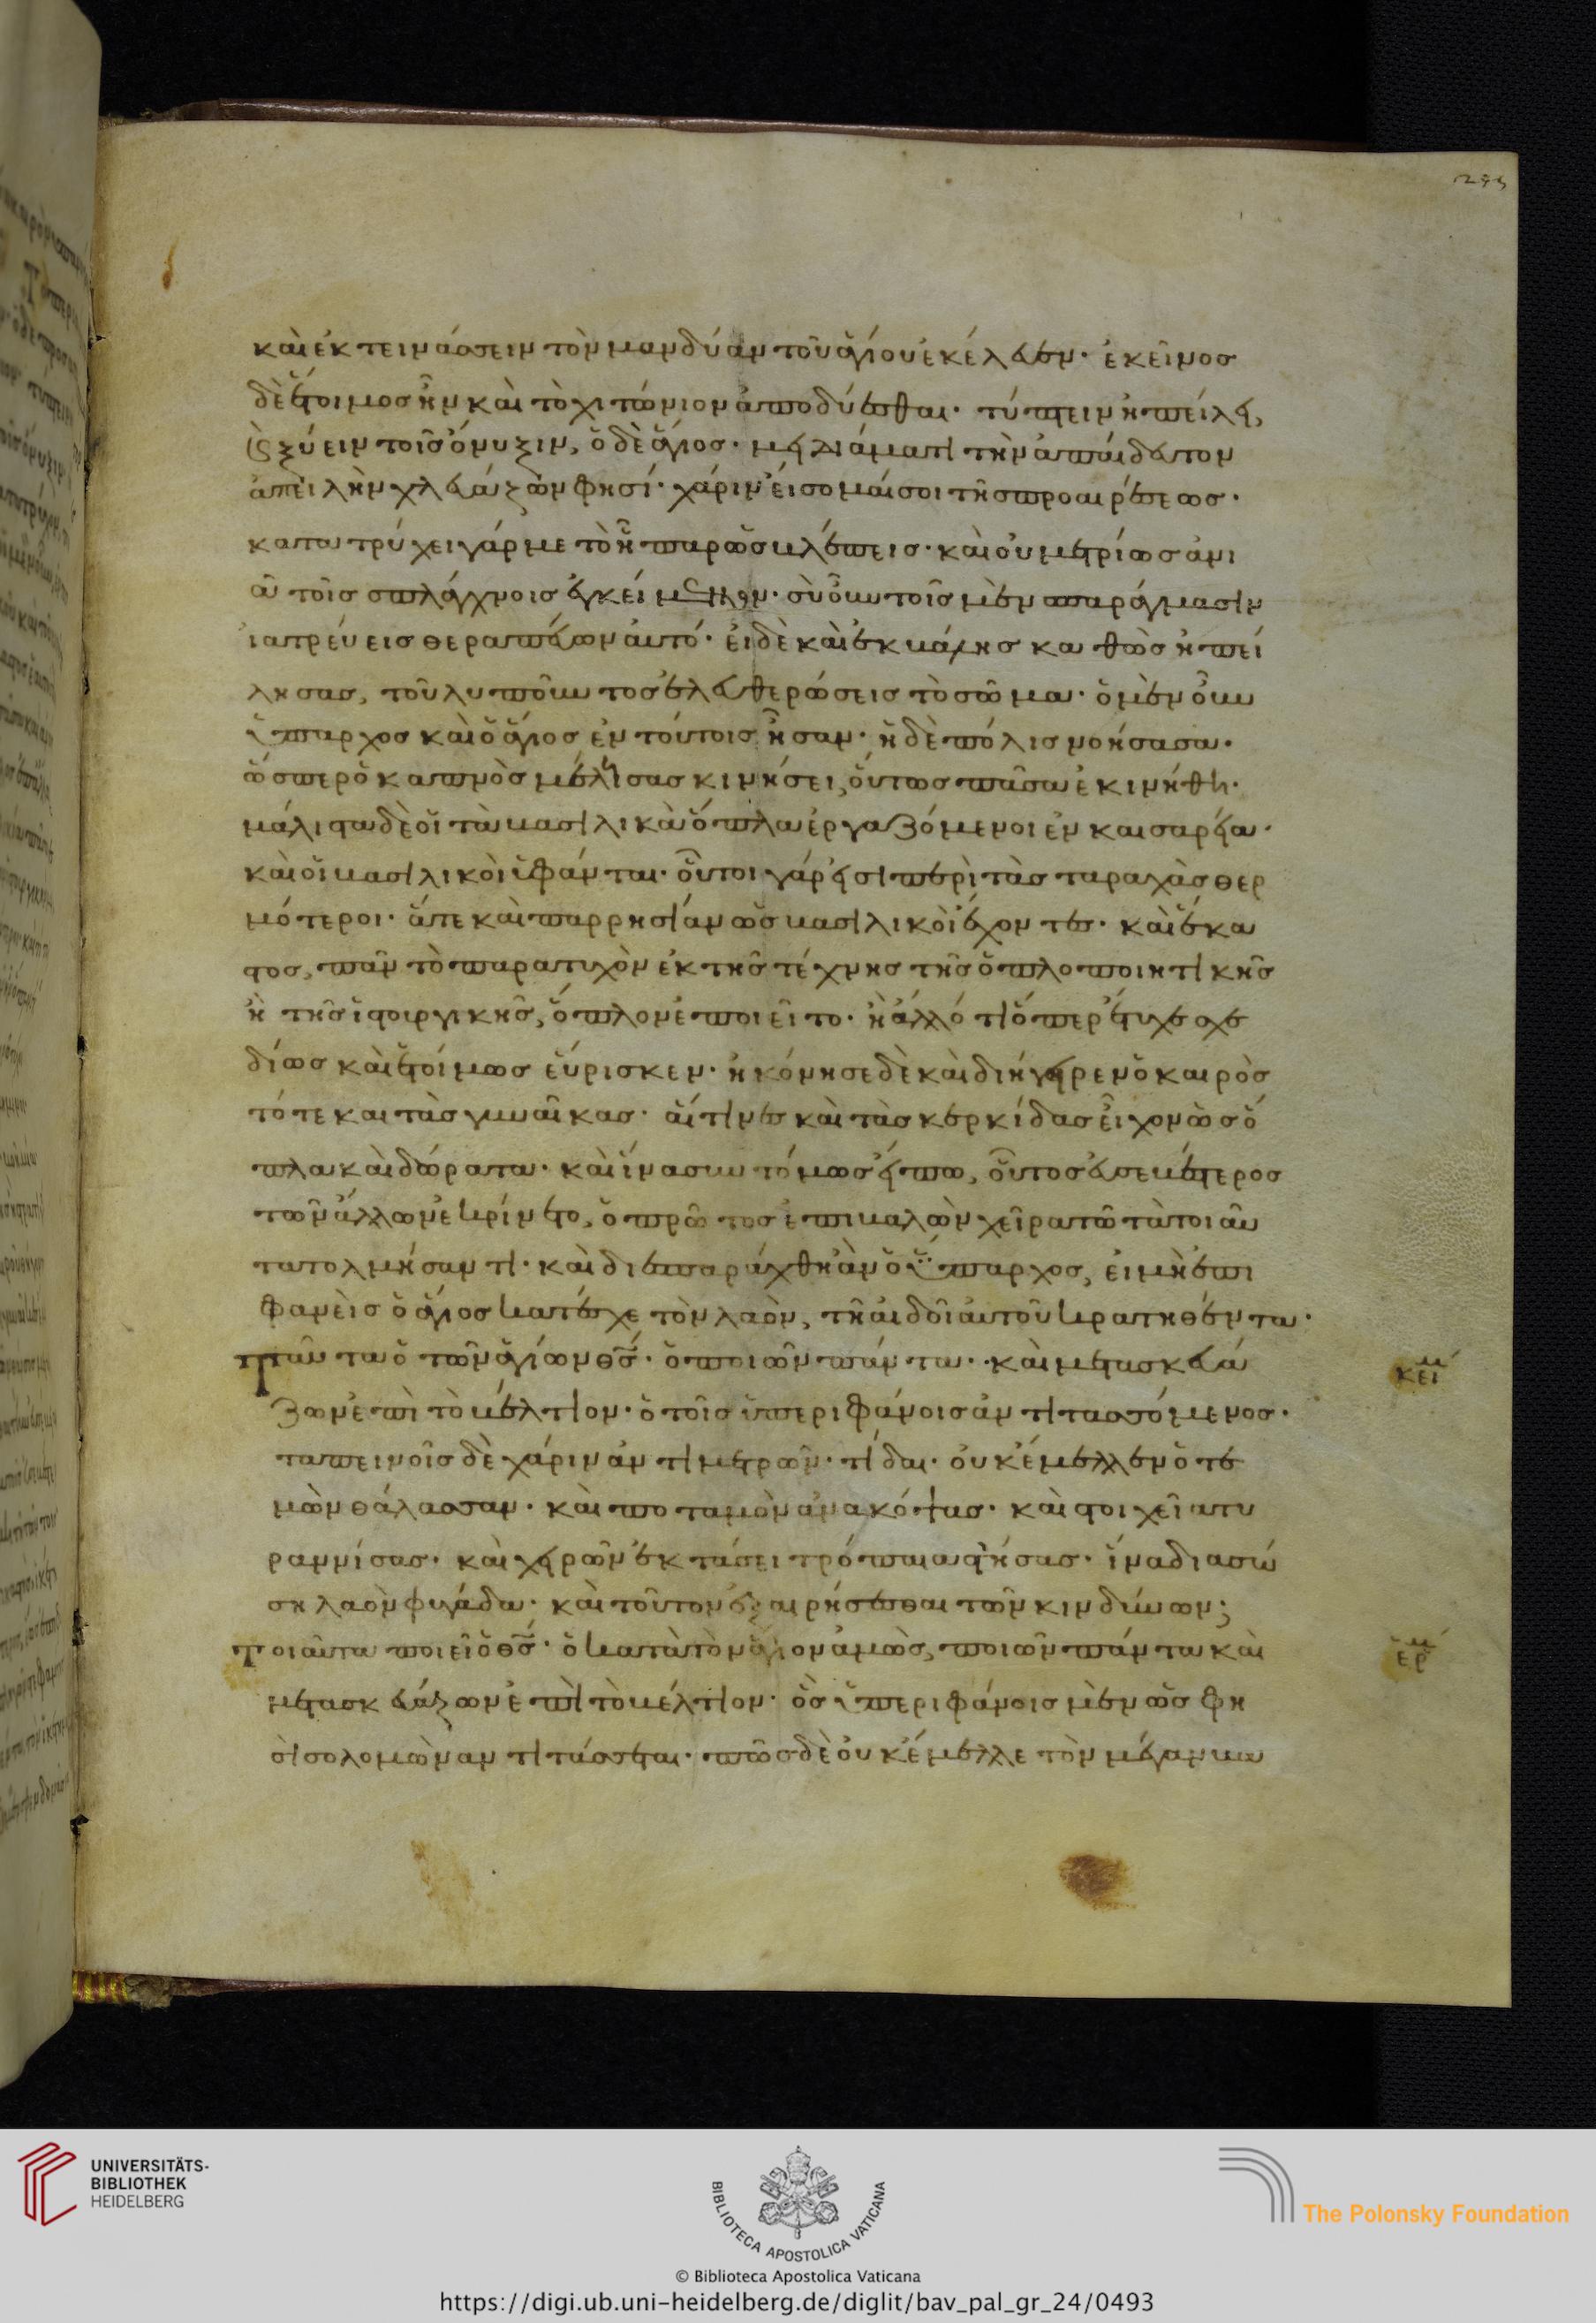 243
καὶ ἐκτεινάσσειν τὸν μανδύαν τοῦ ἁγίου ἐκέλευεν· ἐκεῖνος
δὲ ἕτοιμος ἦν καὶ τὸ χιτώνιον ἀποδύεσθαι· τύπτειν ἠπείλει,
καὶ ξύειν τοῖς ὄνυξιν, ὁ δὲ ἅγιος· μειδιάματι τὴν ἀπαίδευτον
ἀπειλὴν χλευάζων φησί· χάριν εἴσομαί σοι τῆς προαιρέσεως·
κατατρύχει γάρ με τὸ ἧπαρ ὡς βλέπεις· καὶ οὐ μετρίως ἀνι
ᾶ τοῖς σπλάγχνοις ἐγκείμενον· σὺ οὖν τοῖς μὲν σπαράγμασιν
ἰατρεύεις θεραπεύων αὐτό· εἰ δὲ καὶ ἐκβάλῃς καθὼς ἠπεί
λησας, τοῦ λυποῦντος ἐλευθερώσεις τὸ σῶμα· ὁ μὲν οὖν
ὕπαρχος καὶ ὁ ἅγιος ἐν τούτοις ἦσαν· ἡ δὲ πόλις νοήσασα·
ὥσπερ ὁ καπνὸς μελίσσας κινήσει, οὕτως πᾶσα ἐκινήθη·
μάλιστα δὲ οἱ τὰ βασιλικὰ ὅπλα ἐργαζόμενοι ἐν καισαρεία·
καὶ οἱ βασιλικοὶ ὑφάνται· οὗτοι γάρ εἰσι περὶ τὰς ταραχὰς θερ
μότεροι· ἅτε καὶ παρρησίαν ὡς βασιλικοὶ ἔχοντες· καὶ ἕκα
στος, πᾶν τὸ παρατυχὸν ἐκ τῆς τέχνης τῆς ὁπλοποιητικῆς
ἢ τῆς ἱστουργικῆς, ὅπλον ἐποιεῖτο· ἢ ἄλλό τι ὅπερ ἔτυχε σχε
δίως καὶ ἑτοίμως εὕρισκεν· ἠκόνησε δὲ καὶ διήγειρεν ὁ καιρὸς
τότε και τὰς γυναῖκας· αἵτινες καὶ τὰς κερκίδας εἶχον ὡς ὅ
πλα καὶ δώρατα· καὶ ἵνα συντόμως εἴπω, οὗτος εὐσεβέστερος
τῶν ἄλλων ἐκρίνετο, ὁ πρῶτος ἐπιβαλὼν χεῖρα τῶ τὰ τοιαῦ
τα τολμήσαντι· καὶ διεσπαράχθη ἂν ὁ ὕπαρχος, εἰ μὴ ἐπι
φανεὶς ὁ ἅγιος κατέσχε τὸν λαὸν, τῆ αἰδοῖ αὐτοῦ κρατηθέντα·
Ταῦτα ὁ τῶν ἁγίων θς· ὁ ποιῶν πάντα· καὶ μετασκευά
ζων ἐπὶ τὸ βέλτιον· ὁ τοῖς ὑπεριφάνοις ἀντιτασσόμενος·
ταπεινοῖς δὲ χάριν ἀντιμετρῶν· τί δαι· οὐκ ἔμελλεν ὁ τε
μὼν θάλασσαν· καὶ ποταμὸν ἀνακόψας· καὶ στοιχεῖα τυ
ραννίσας· καὶ χειρῶν ἐκτάσει τρόπαια στήσας· ἵνα διασώ
ση λαὸν φυγάδα· καὶ τοῦτον ἐξαιρήσεσθαι τῶν κινδύνων;
Τοιαῦτα ποιεῖ ὁ θς· ὁ κατὰ τὸν ἅγιον ἀμὼς, ποιῶν πάντα καὶ
μετασκευάζων ἐπὶ τὸ βέλτιον· ὃς ὑπεριφάνοις μὲν ὥς φη
σὶ σολομὼν αντιτάσσεται· πῶς δὲ οὐκ ἔμελλε τὸν μέγαν βα
κείμ
ἑρμ
UNIVERSITÄTS-
BIBLIOTHEK
HEIDELBERG
BIBLIOTECA APOSTOLICA VATICANA
The Polonsky Foundation
© Biblioteca Apostolica Vaticana
https://digi.ub.uni-heidelberg.de/diglit/bav_pal_gr_24/0493